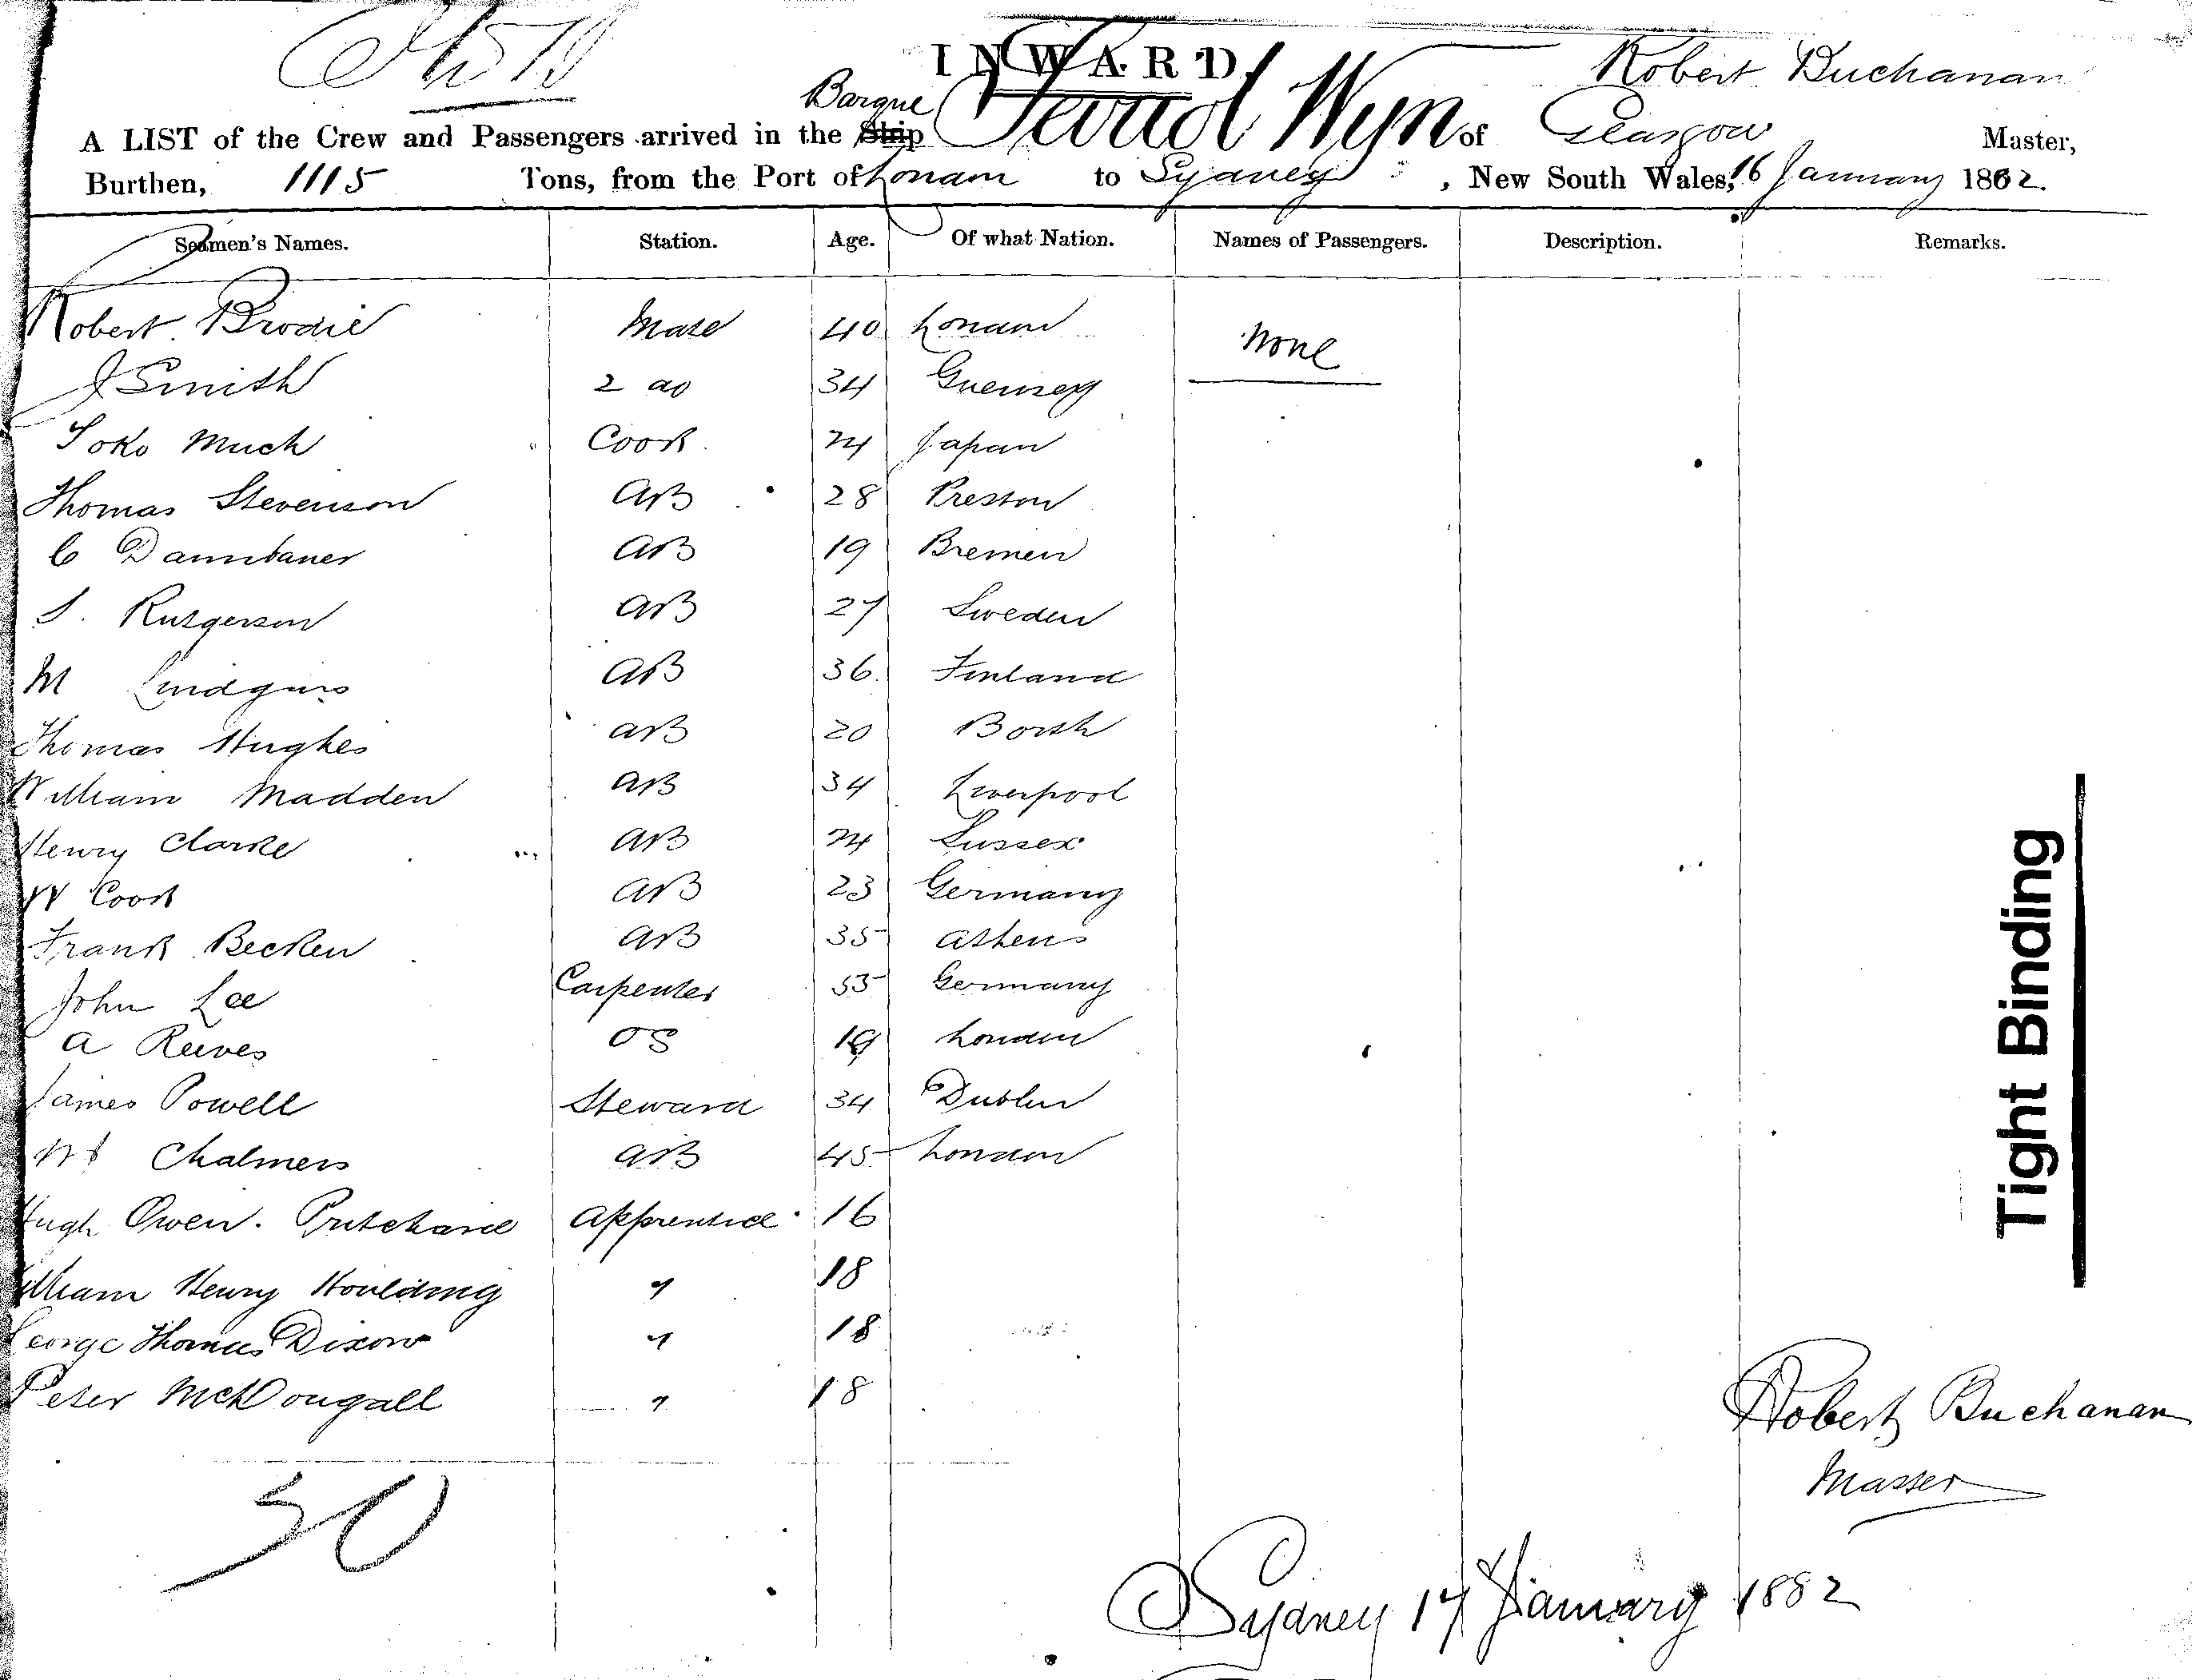 INWARD.
Robert Buchanan
Barque
A LIST of the Crew and Passengers arrived in the Ship Wyn of Glasgow Master,
Burthen, 1115 Tons, from the Port of London to Sydney, New South Wales, 16 January 1882.
Seamen's Names. Station. Age. Of what Nation. Names of Passengers. Description. Remarks.
Robert Brodie Mate 40 London None
J Smith 2 do 34 Guernsey
Soko Much Cook 24 Japan
Thomas Stevenson AB 28 Preston
C Dannbauer AB 19 Bremen
S. Rutgerson AB 27 Sweden
M AB 36 Finland
Thomas Hughes AB 20 Borth
William Madden AB 34 Liverpool
Henry Clarke AB 24 Sussex
W Cook AB 23 Germany
Frank Becken AB 35 Athens
John Lee Carpenter 53 Germany
A Reeves OS 19 London
James Powell Steward 34 Dublin
Chalmers AB 45 London
Hugh Owen. Pritchard Apprentice 16
William Henry Houlding " 18
George Thomas Dixon " 18
Peter McDougall " 18
Robert Buchanan
Master
Sydney 17 January 1882
Tight Binding